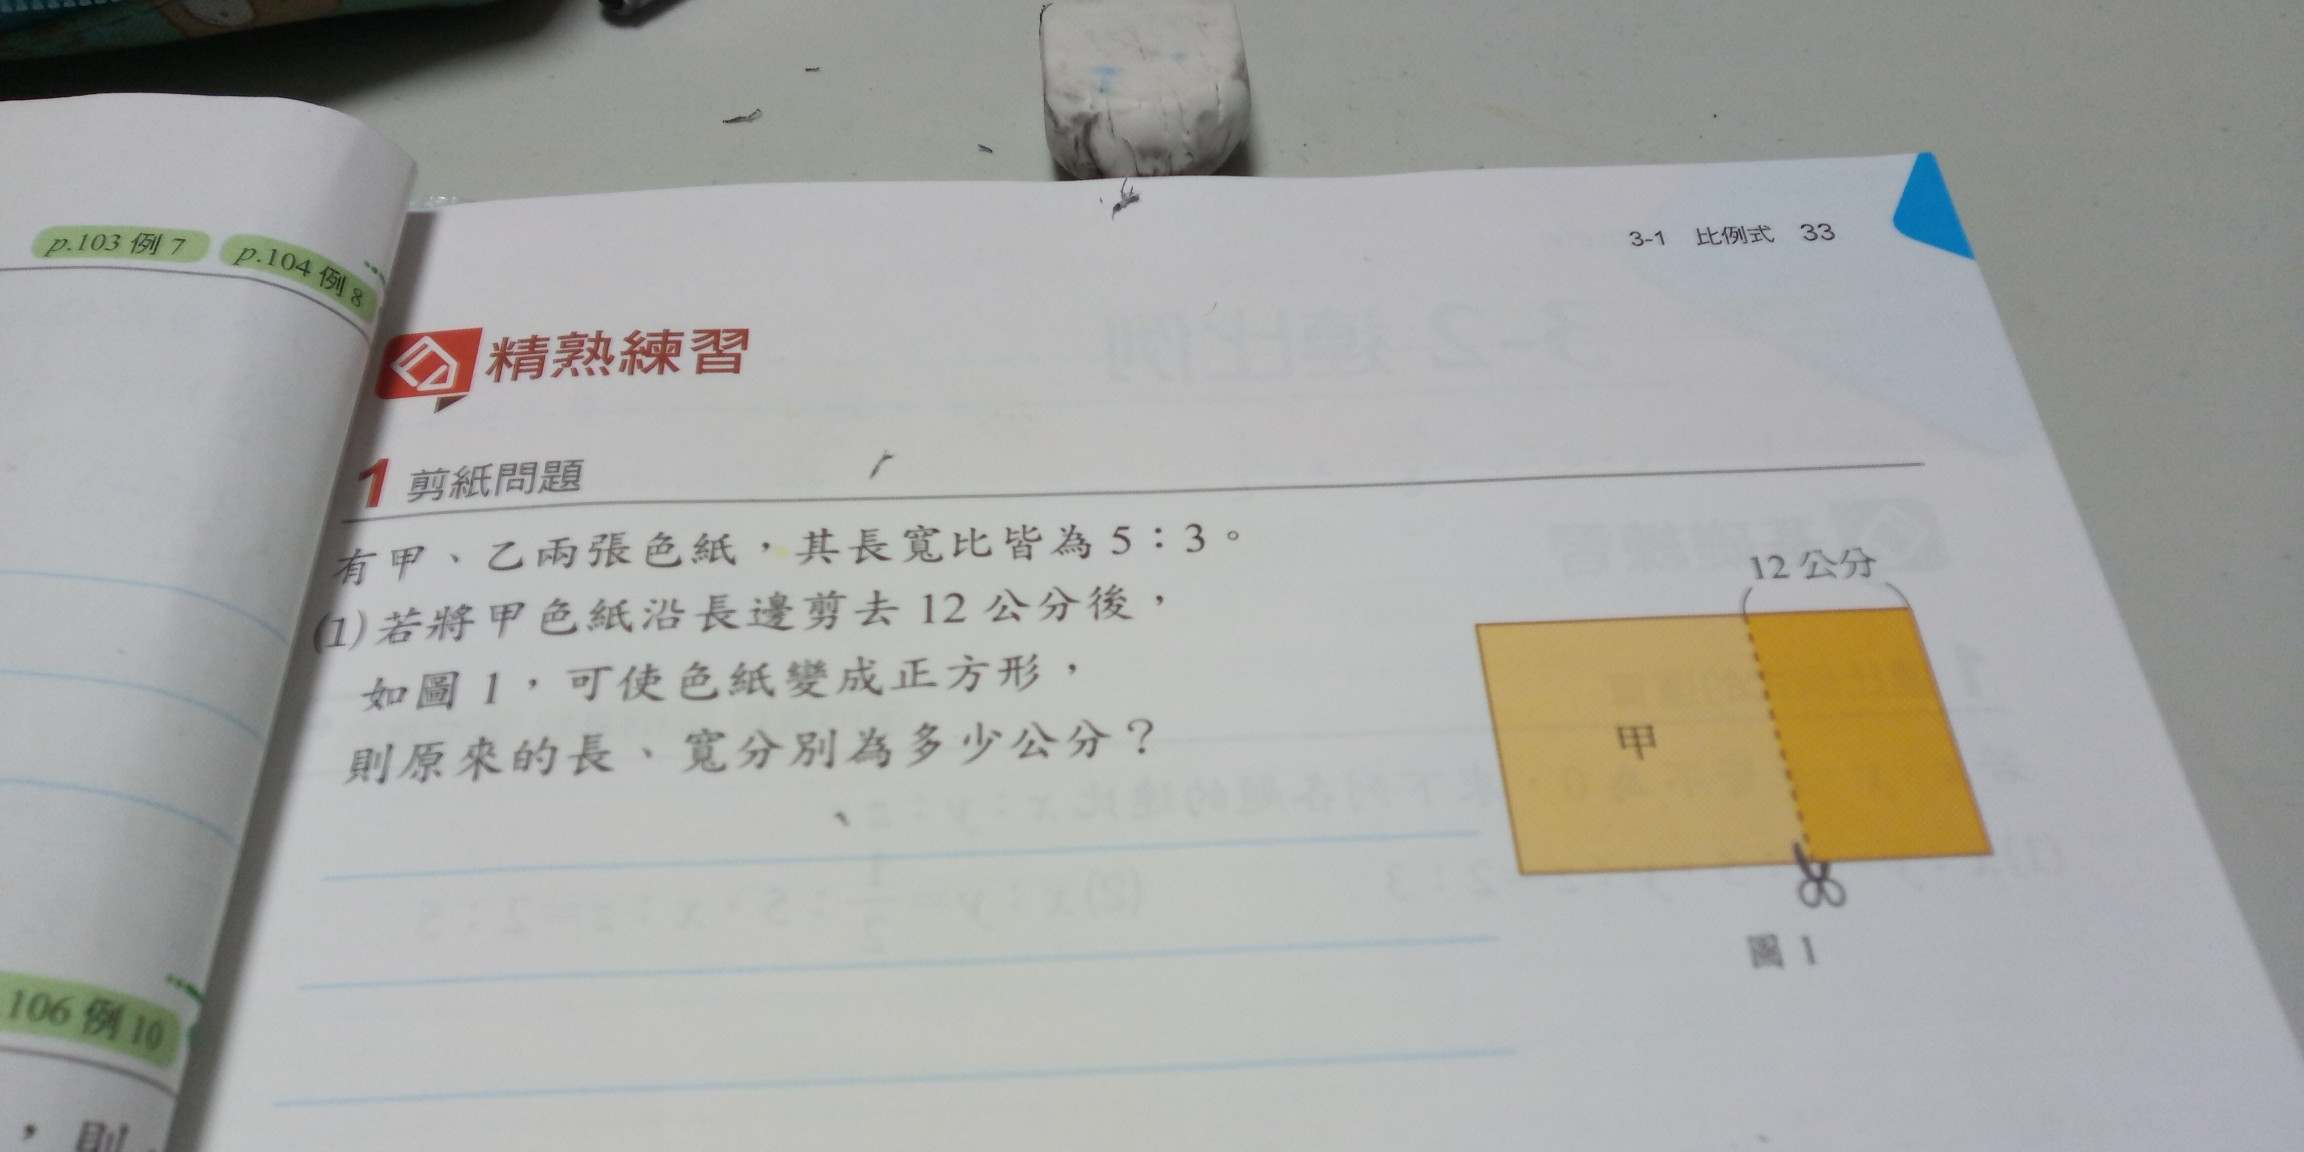 p.103 例 7
p.104 例 8
3-1 比例式 33
精熟練習
1 剪紙問題
有甲、乙兩張色紙,其長寬比皆為 5:3。
(1)若將甲色紙沿長邊剪去 12 公分後,
如圖 1,可使色紙變成正方形,
則原來的長、寬分別為多少公分?
12 公分
甲
圖 1
106 例 10
,則